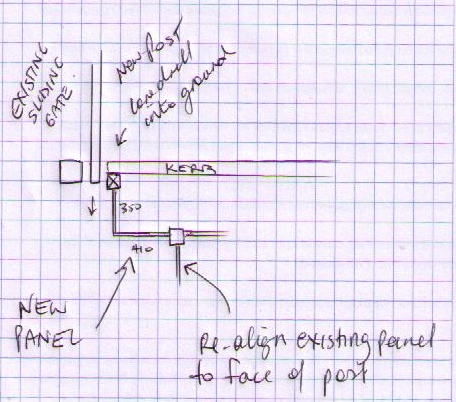 EXISTING
SLIDING
GATE.
New Post
core drill
into ground
KERB
350
410
NEW
PANEL
Re-align existing panel
to face of post